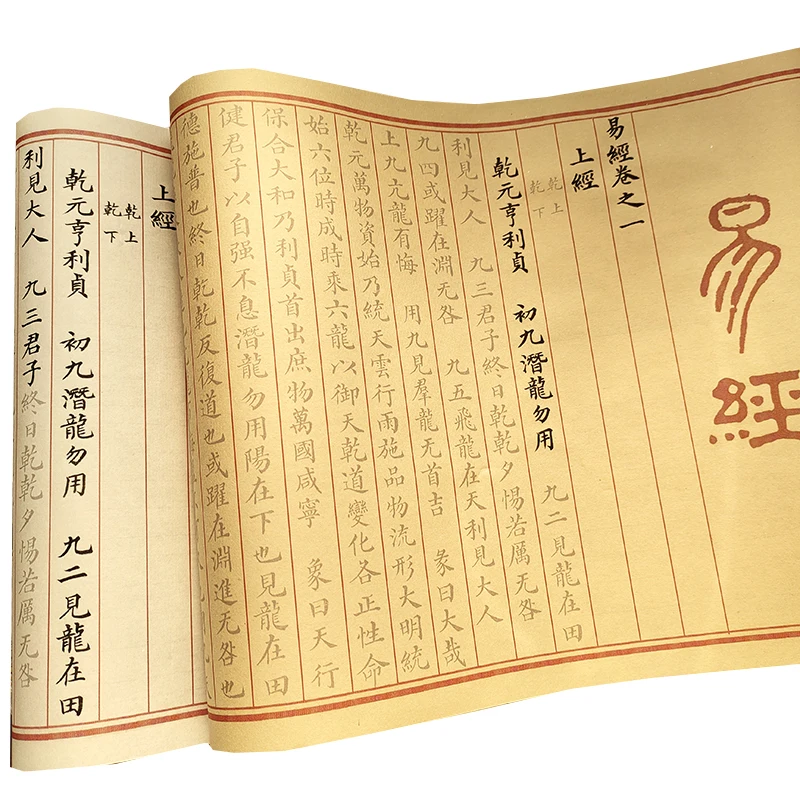 易經
易經卷之一
上經
乾上
乾下
乾元亨利貞 初九潛龍勿用 九二見龍在田
利見大人 九三君子終日乾乾夕惕若厲无咎
九四或躍在淵无咎 九五飛龍在天利見大人
上九亢龍有悔 用九見羣龍无首吉 彖曰大哉
乾元萬物資始乃統天雲行雨施品物流形大明統
始六位時成時乘六龍以御天乾道變化各正性命
保合大和乃利貞首出庶物萬國咸寧 象曰天行
健君子以自强不息潛龍勿用陽在下也見龍在田
德施普也終日乾乾反復道也或躍在淵進无咎也
上經
乾上
乾下
乾元亨利貞 初九潛龍勿用 九二見龍在田
利見大人 九三君子終日乾乾夕惕若厲无咎